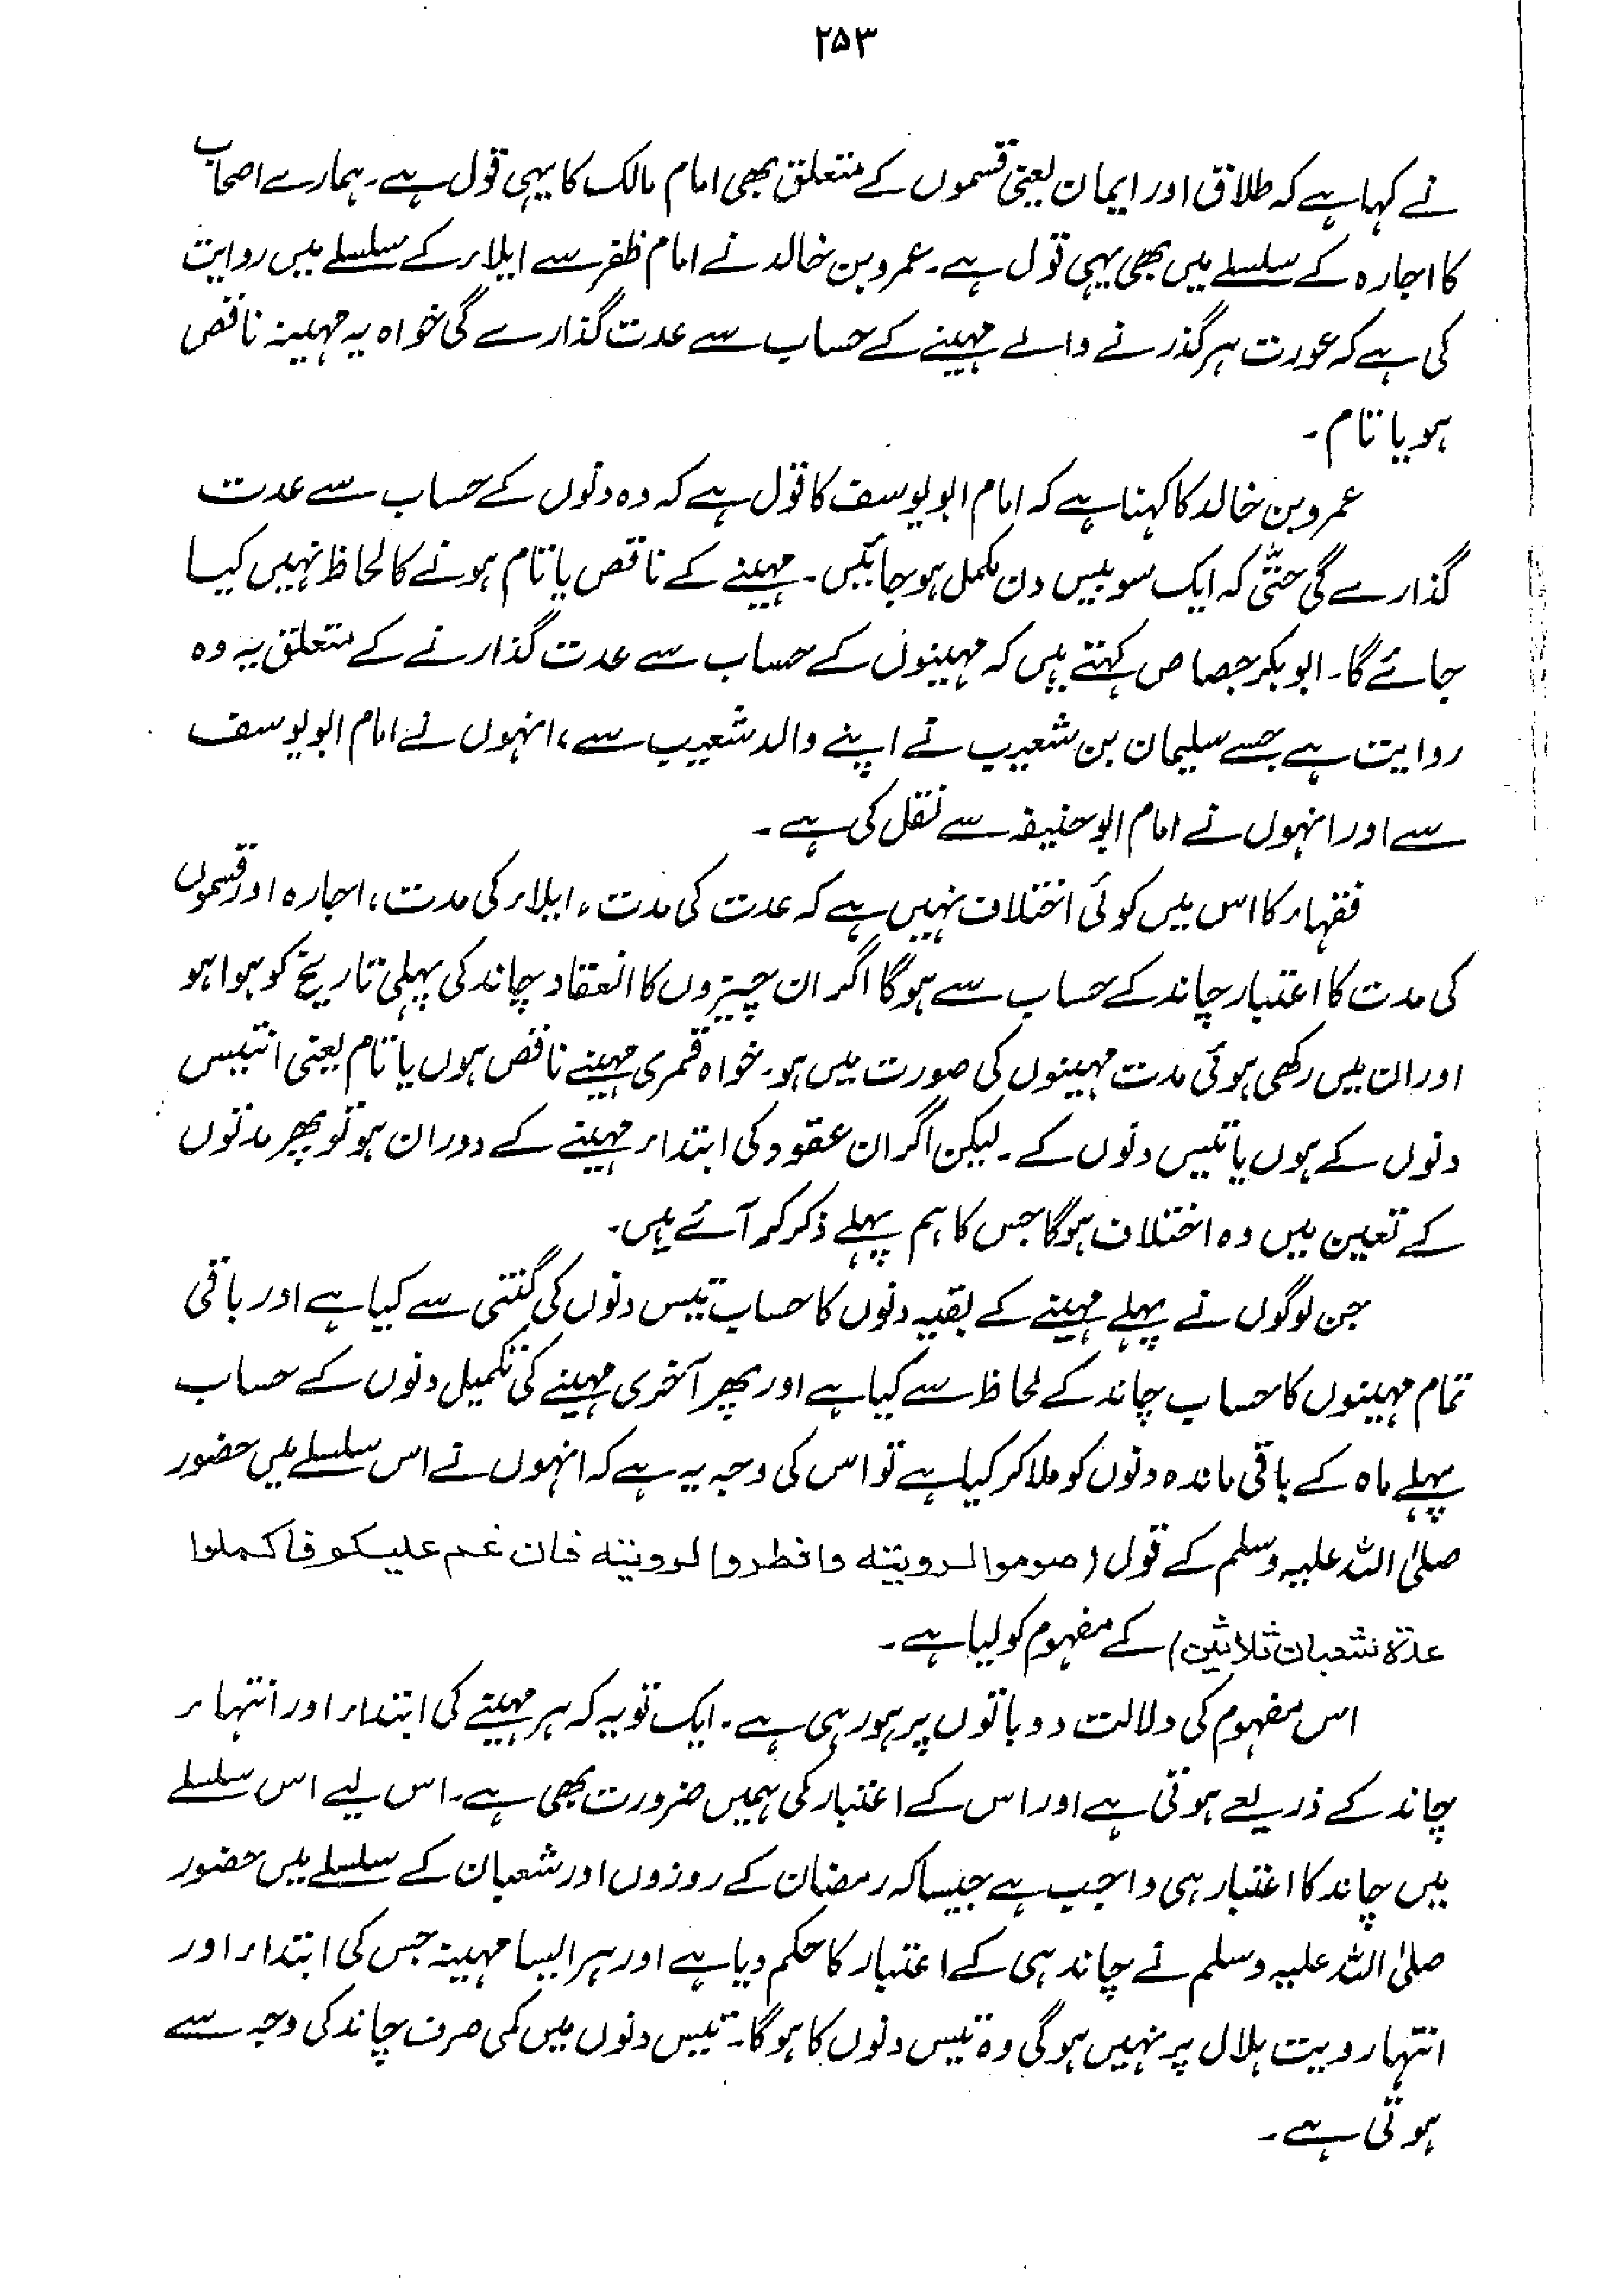 ۲۵۳
نے کہا ہے کہ طلاق اور ایمان یعنی قسموں کے متعلق بھی امام مالک کا یہی قول ہے۔ ہمارے اصحاب
کا اجارہ کے سلسلے میں بھی یہی قول ہے۔ عمرو بن خالد نے امام ظفر سے ایلاء کے سلسلے میں روایت
کی ہے کہ عورت ہر گذرنے والے مہینے کے حساب سے عدت گذارے گی خواہ یہ مہینہ ناقص
ہو یا تام۔
عمرو بن خالد کا کہنا ہے کہ امام ابو یوسف کا قول ہے کہ وہ دنوں کے حساب سے عدت
گذارے گی حتّٰی کہ ایک سو بیس دن مکمل ہو جائیں۔ مہینے کے ناقص یا تام ہونے کا لحاظ نہیں کیا
جائے گا۔ ابو بکر جصاص کہتے ہیں کہ مہینوں کے حساب سے عدت گذارنے کے متعلق یہ وہ
روایت ہے جسے سلیمان بن شعیب نے اپنے والد شعیب سے، انہوں نے امام ابو یوسف
سے اور انہوں نے امام ابو حنیفہ سے نقل کی ہے۔
فقہاء کا اس میں کوئی اختلاف نہیں ہے کہ عدت کی مدت، ایلاء کی مدت، اجارہ اور قسموں
کی مدت کا اعتبار چاند کے حساب سے ہو گا اگر ان چیزوں کا انعقاد چاند کی پہلی تاریخ کو ہوا ہو
اور ان میں رکھی ہوئی مدت مہینوں کی صورت میں ہو۔ خواہ قمری مہینے ناقص ہوں یا تام یعنی انتیس
دنوں کے ہوں یا تیس دنوں کے۔ لیکن اگر ان عقود کی ابتداء مہینے کے دوران ہو تو پھر مدتوں
کے تعین میں وہ اختلاف ہو گا جس کا ہم پہلے ذکر کر آئے ہیں۔
جن لوگوں نے پہلے مہینے کے بقیہ دنوں کا حساب تیس دنوں کی گنتی سے کیا ہے اور باقی
تمام مہینوں کا حساب چاند کے لحاظ سے کیا ہے اور پھر آخری مہینے کی تکمیل دنوں کے حساب
پہلے ماہ کے باقی ماندہ دنوں کو ملا کر کیا ہے تو اس کی وجہ یہ ہے کہ انہوں نے اس سلسلے میں حضور
صلی اللہ علیہ وسلم کے قول (صوموا لرويته وافطروا لرويته فان غم عليكم فاكملوا
عدة شعبان ثلاثين) کے مفہوم کو لیا ہے۔
اس مفہوم کی دلالت دو باتوں پر ہو رہی ہے۔ ایک تو یہ کہ ہر مہینے کی ابتداء اور انتہاء
چاند کے ذریعے ہوتی ہے اور اس کے اعتبار کی ہمیں ضرورت بھی ہے۔ اس لیے اس سلسلے
میں چاند کا اعتبار ہی واجب ہے جیسا کہ رمضان کے روزوں اور شعبان کے سلسلے میں حضور
صلی اللہ علیہ وسلم نے چاند ہی کے اعتبار کا حکم دیا ہے اور ہر ایسا مہینہ جس کی ابتداء اور
انتہاء رویت ہلال پر نہیں ہو گی وہ تیس دنوں کا ہو گا۔ تیس دنوں میں کمی صرف چاند کی وجہ سے
ہوتی ہے۔